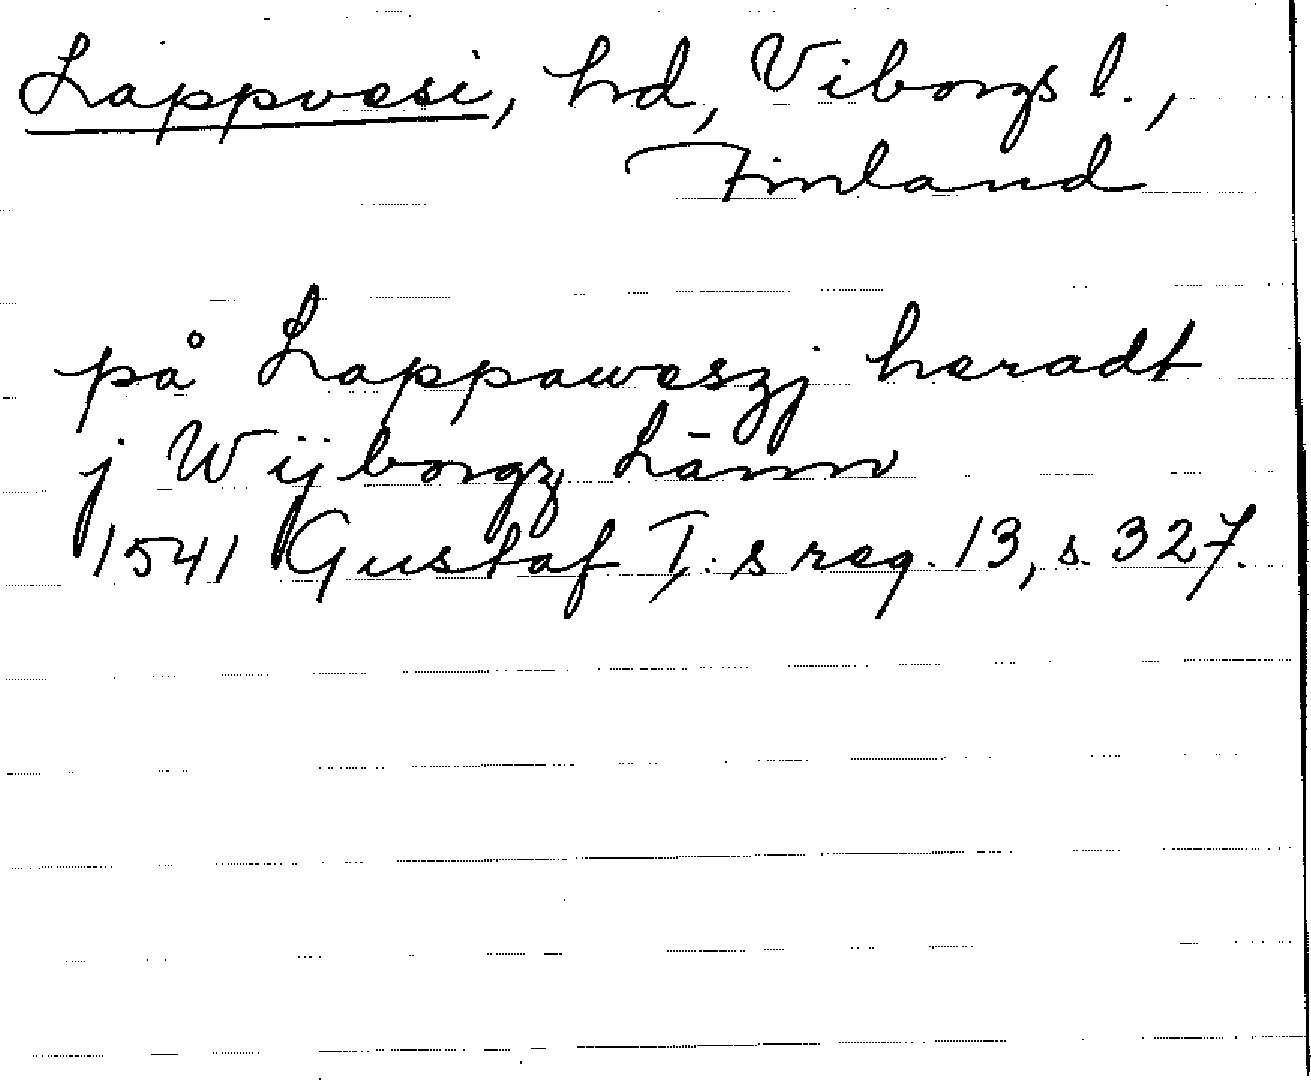 Lappvesi, hd, Viborgs l.,
Finland
på Lappaweszj heradt
j Wijborgz Länn
1541 Gustaf I:s reg. 13, s. 327.